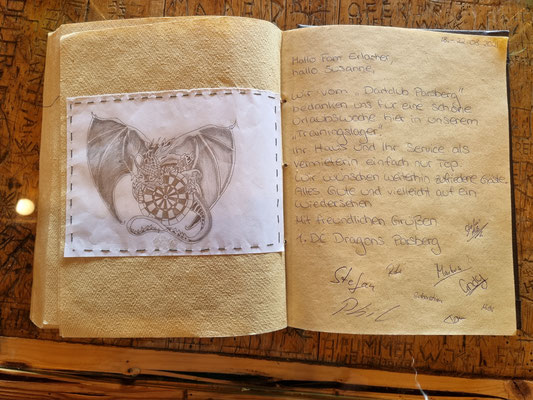 Hallo Fam Erlacher,
hallo Susanne,
wir vom „Dartclub Parsberg"
bedanken uns für eine schöne
Urlaubswoche hier in unserem
„Trainingslager"
Ihr Haus und Ihr Service als
Vermieterin einfach nur Top.
Wir wünschen weiterhin zufriedene Gäste.
Alles Gute und vielleicht auf Ein
Wiedersehen
Mit freundlichen Grüßen
1. DC Dragons Parsberg
Stefan